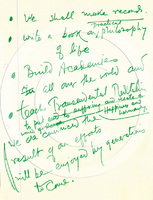 • We shall make records.
Practical
• write a book on Philosophy
of life
• Build Academies
all over the world and
• teach Transcendental Meditation
to put end to suffering and create
happiness and
harmony
We are convinced the
result of our efforts
will be enjoyed by generations
to come.